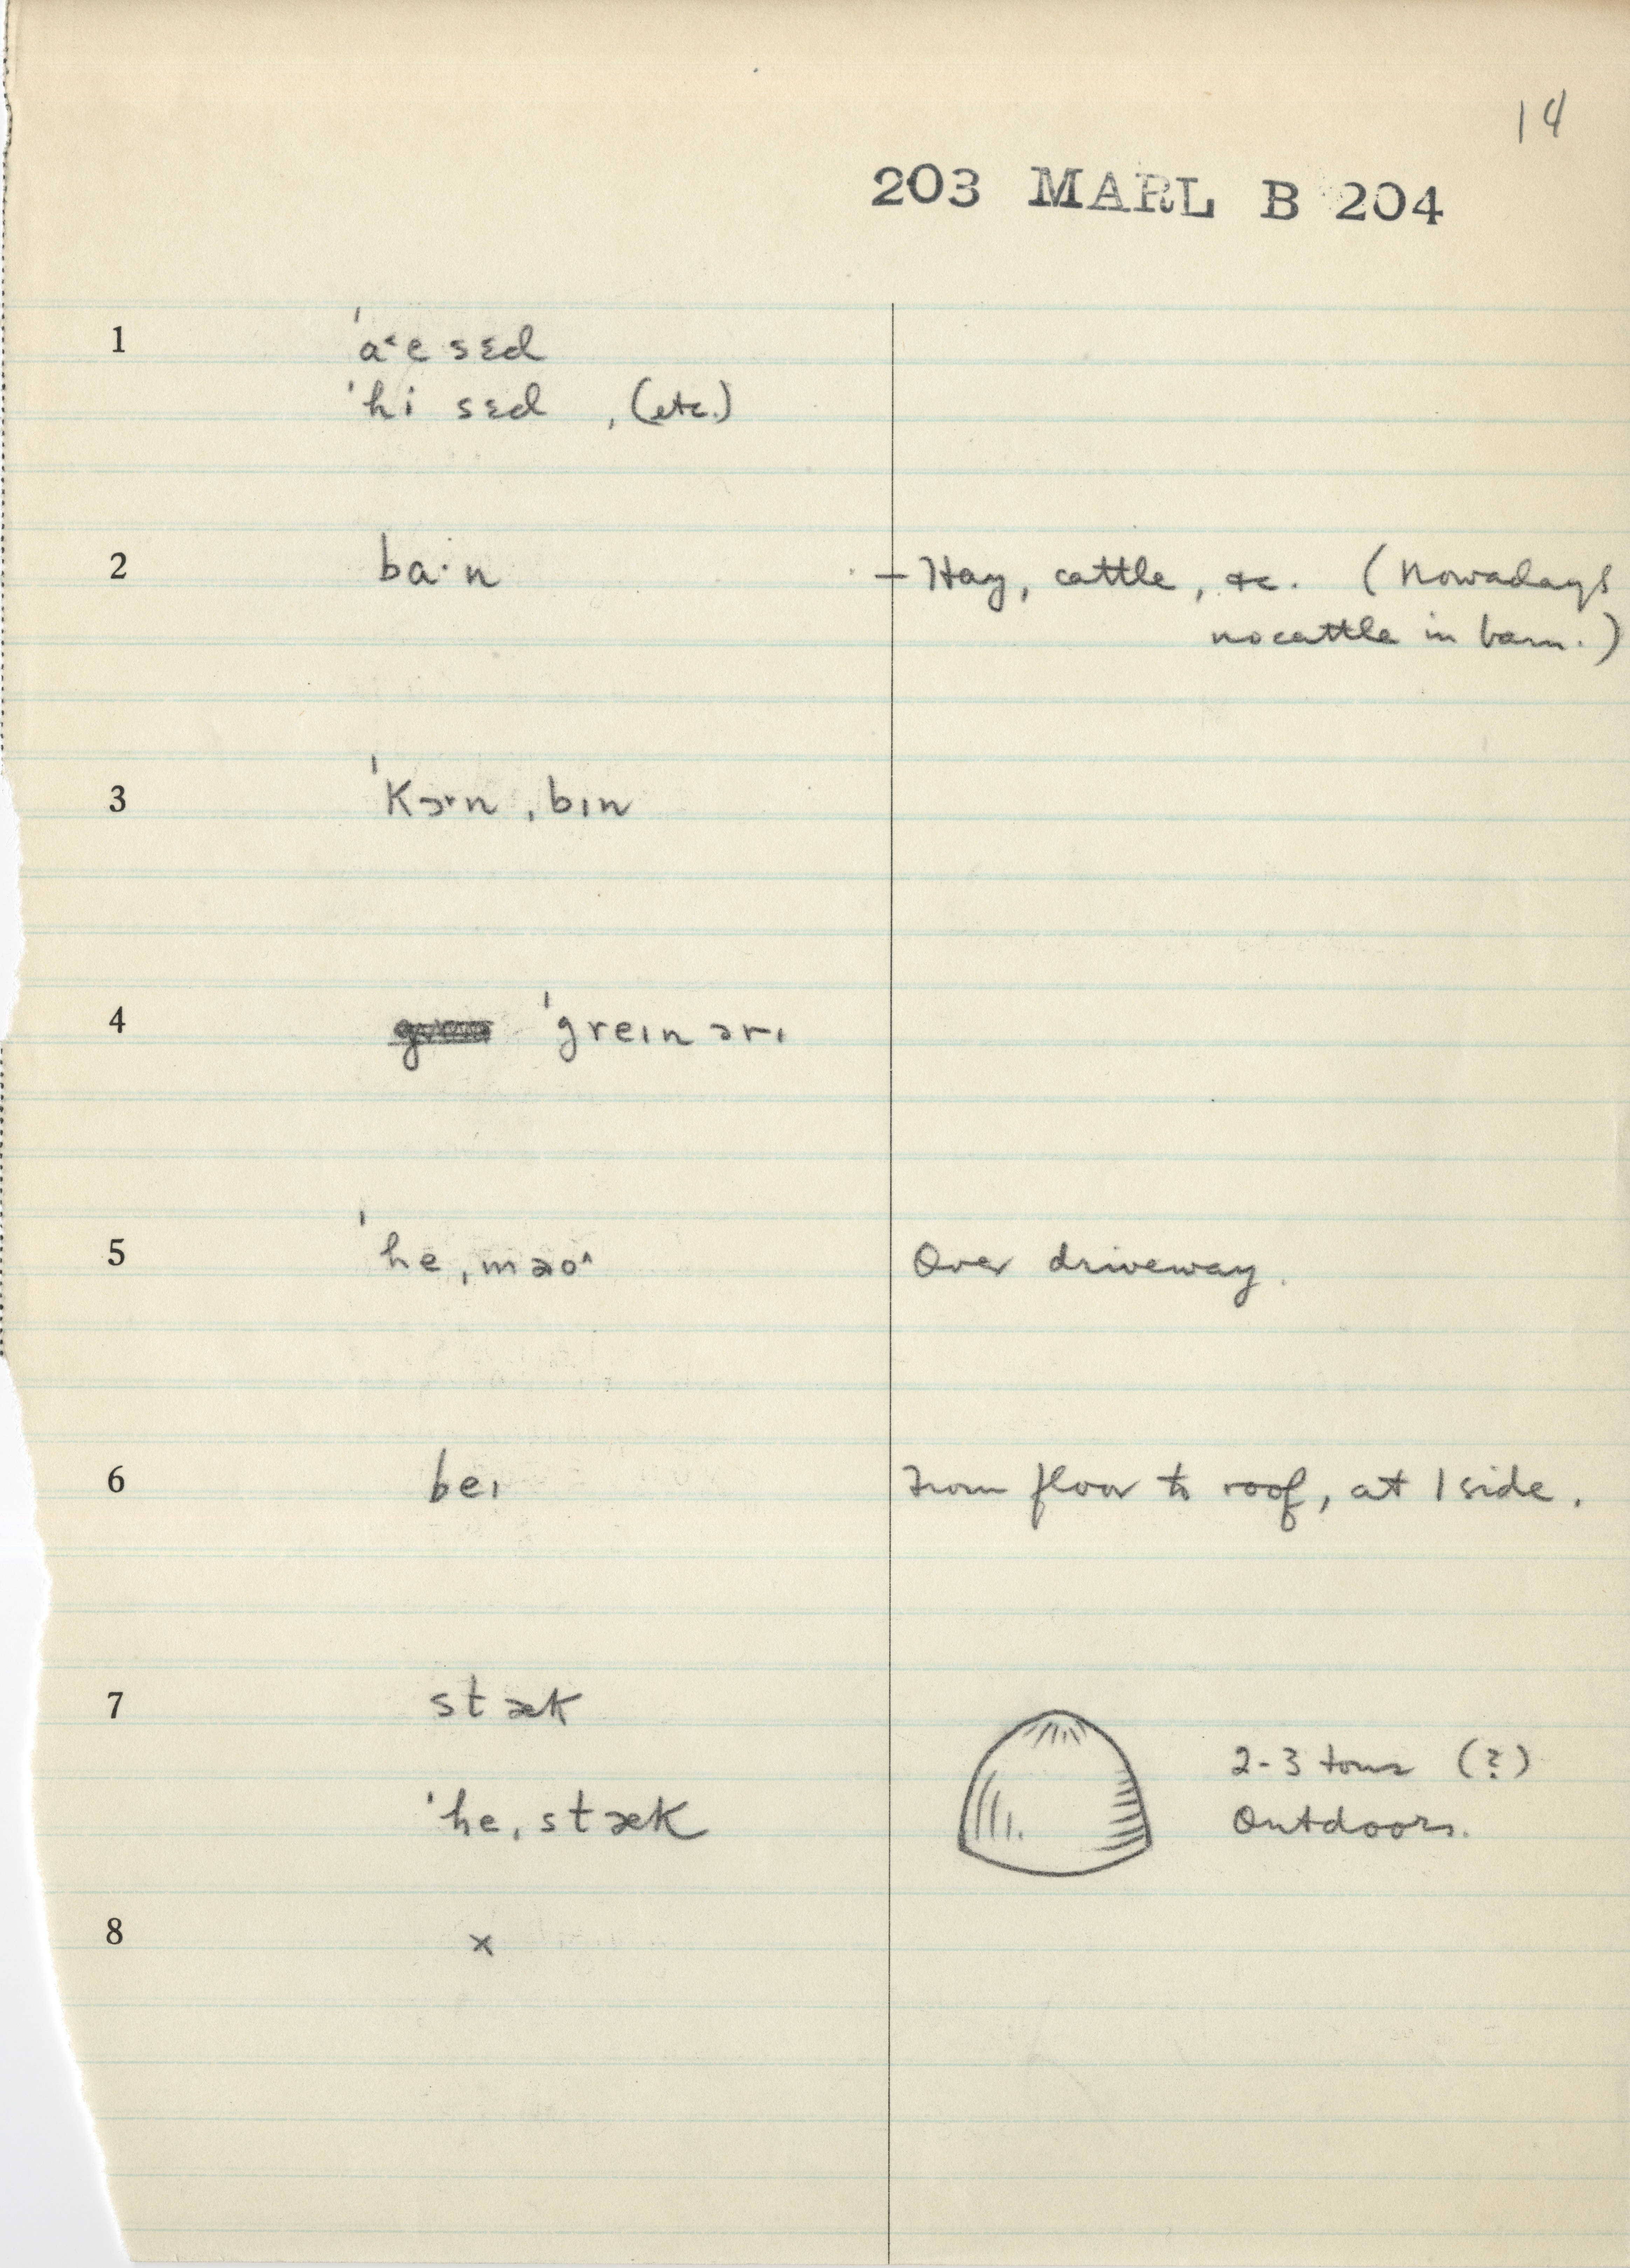 14
203 MARL B 204
1 ˈa˂e sɛd
ˈhi sɛd , (etc.)
2 ba·n – Hay, cattle, &c. (Nowadays
no cattle in barn.)
3 ˈkɔɚn ˌbɪn
4 ˈgreɪnərɪ
5 ˈheˌmaoˆ Over driveway.
6 beɪ From floor to roof, at 1 side.
7 stæk
2-3 tons (?)
ˈheˌstæk Outdoors.
8 x